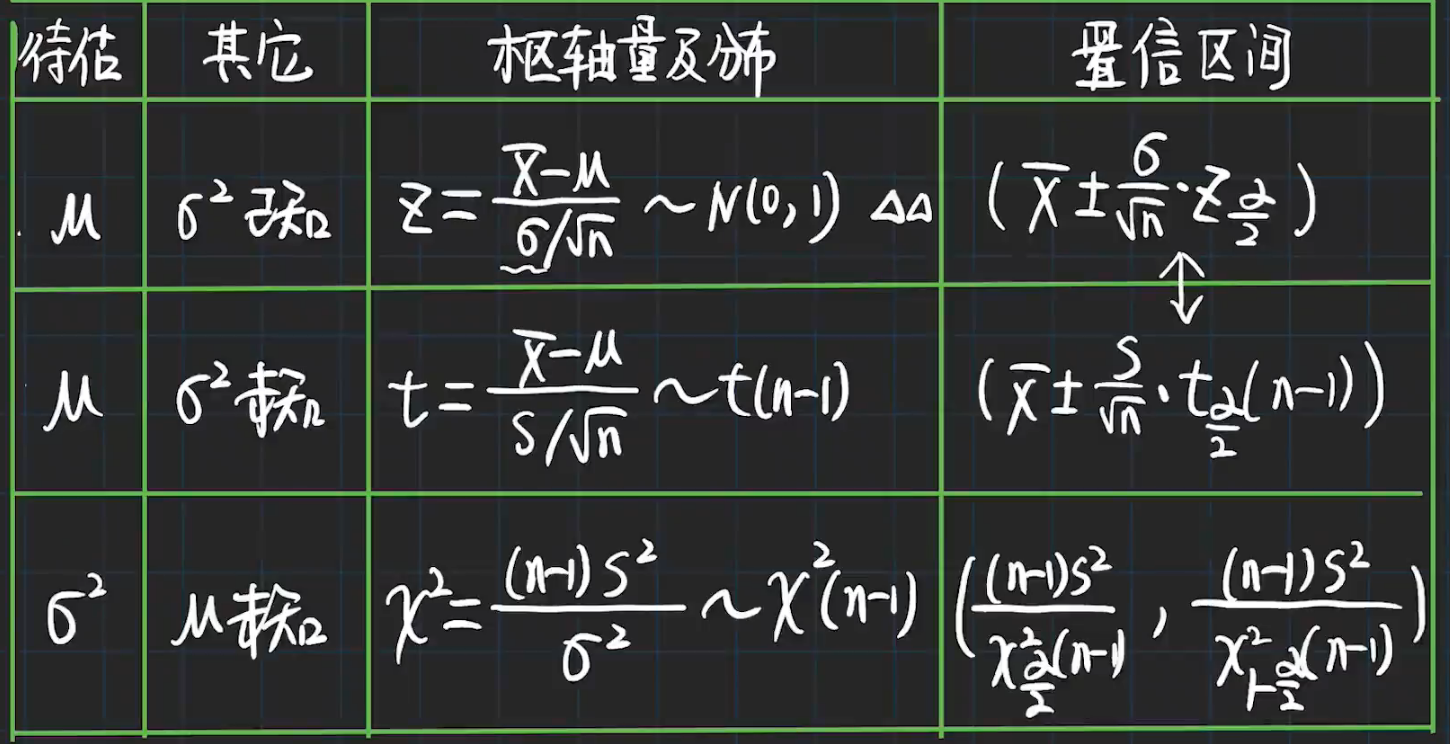 待估 其它 枢轴量及分布 置信区间
μ σ² 已知 Z = (X̄-μ)/(σ/√n) ~ N(0,1) △△ (X̄ ± σ/√n · Z_{α/2})
↕
μ σ² 未知 t = (X̄-μ)/(S/√n) ~ t(n-1) (X̄ ± S/√n · t_{α/2}(n-1))
σ² μ未知 χ² = (n-1)S²/σ² ~ χ²(n-1) ((n-1)S²/χ²_{α/2}(n-1), (n-1)S²/χ²_{1-α/2}(n-1))